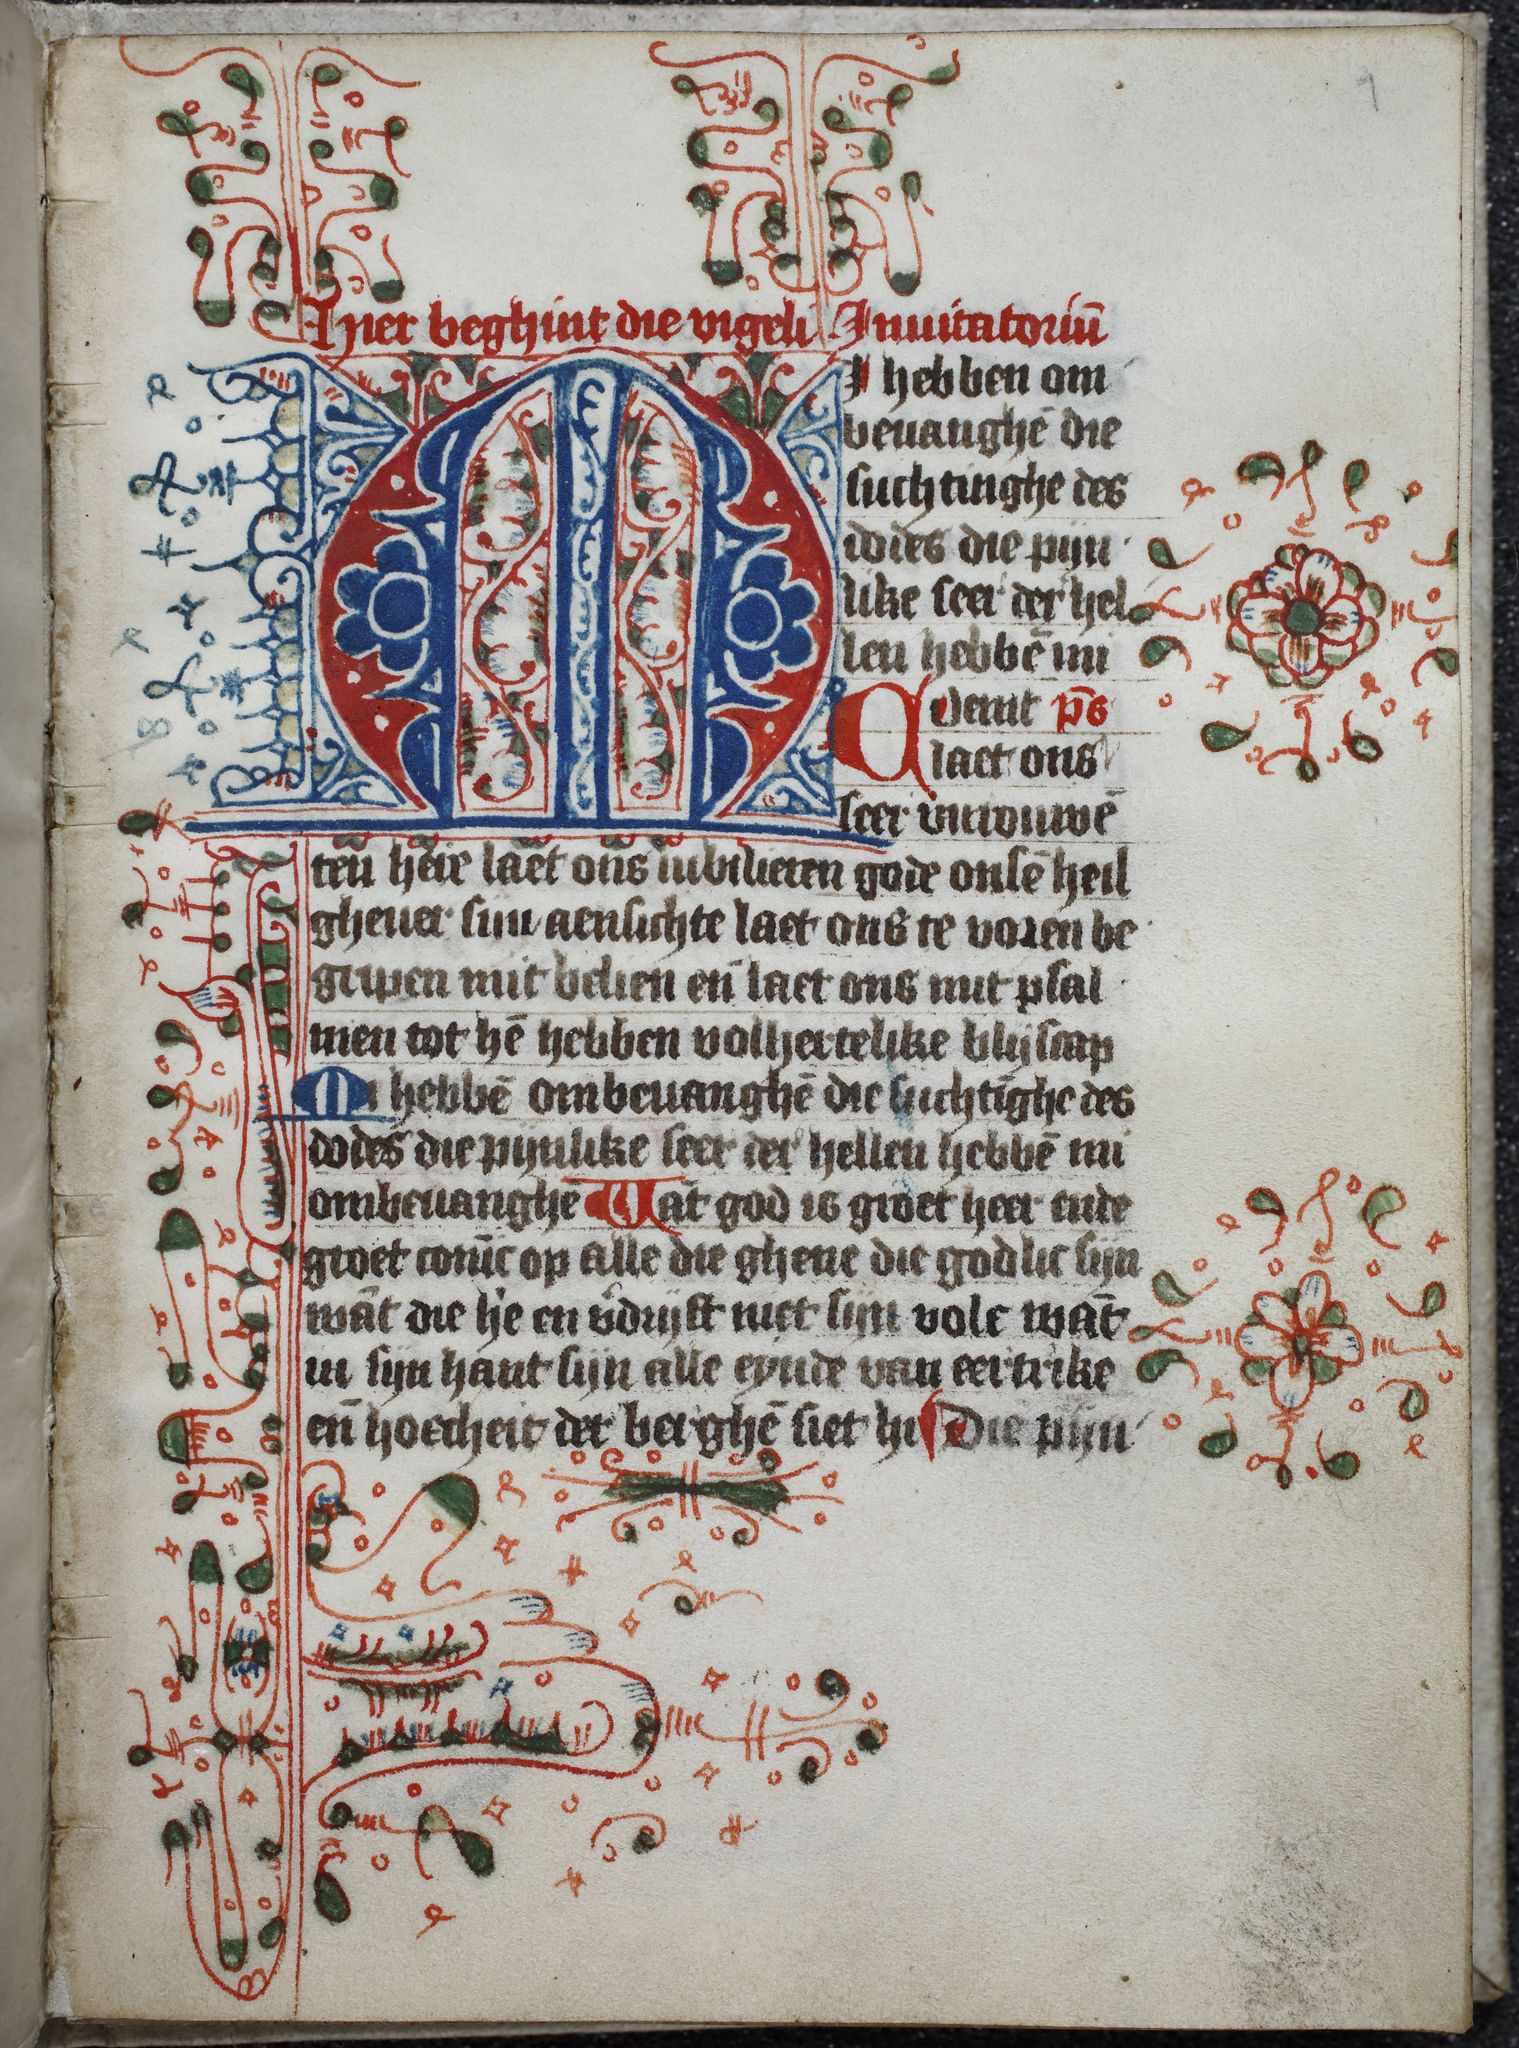 Hier beghint die vigeli Inuitatoriū
MI hebben om
beuanghē die
suchtinghe des
dodes die pijn
like seer der hel
len hebbē mi
Coemt ps̄
laet ons
seer vurouwē
ten heir laet ons iubilieren gode onsē heil
gheuer sijn aensichte laet ons te voren be
gripen mit belien eñ laet ons mit psal
men tot hē hebben volhertelike blijscap
Mi hebbē ombeuanghē die suchtīghe des
dodes die pijnlike seer der hellen hebbē mi
ombeuanghē Wāt god is groet heer ende
groet coninc op alle die ghene die godlic sijn
wāt die hē en v̄drijft niet sijn volc wāt
in sijn hant sijn alle eynde van eertrike
eñ hoecheit der berghē siet hi Die pijn